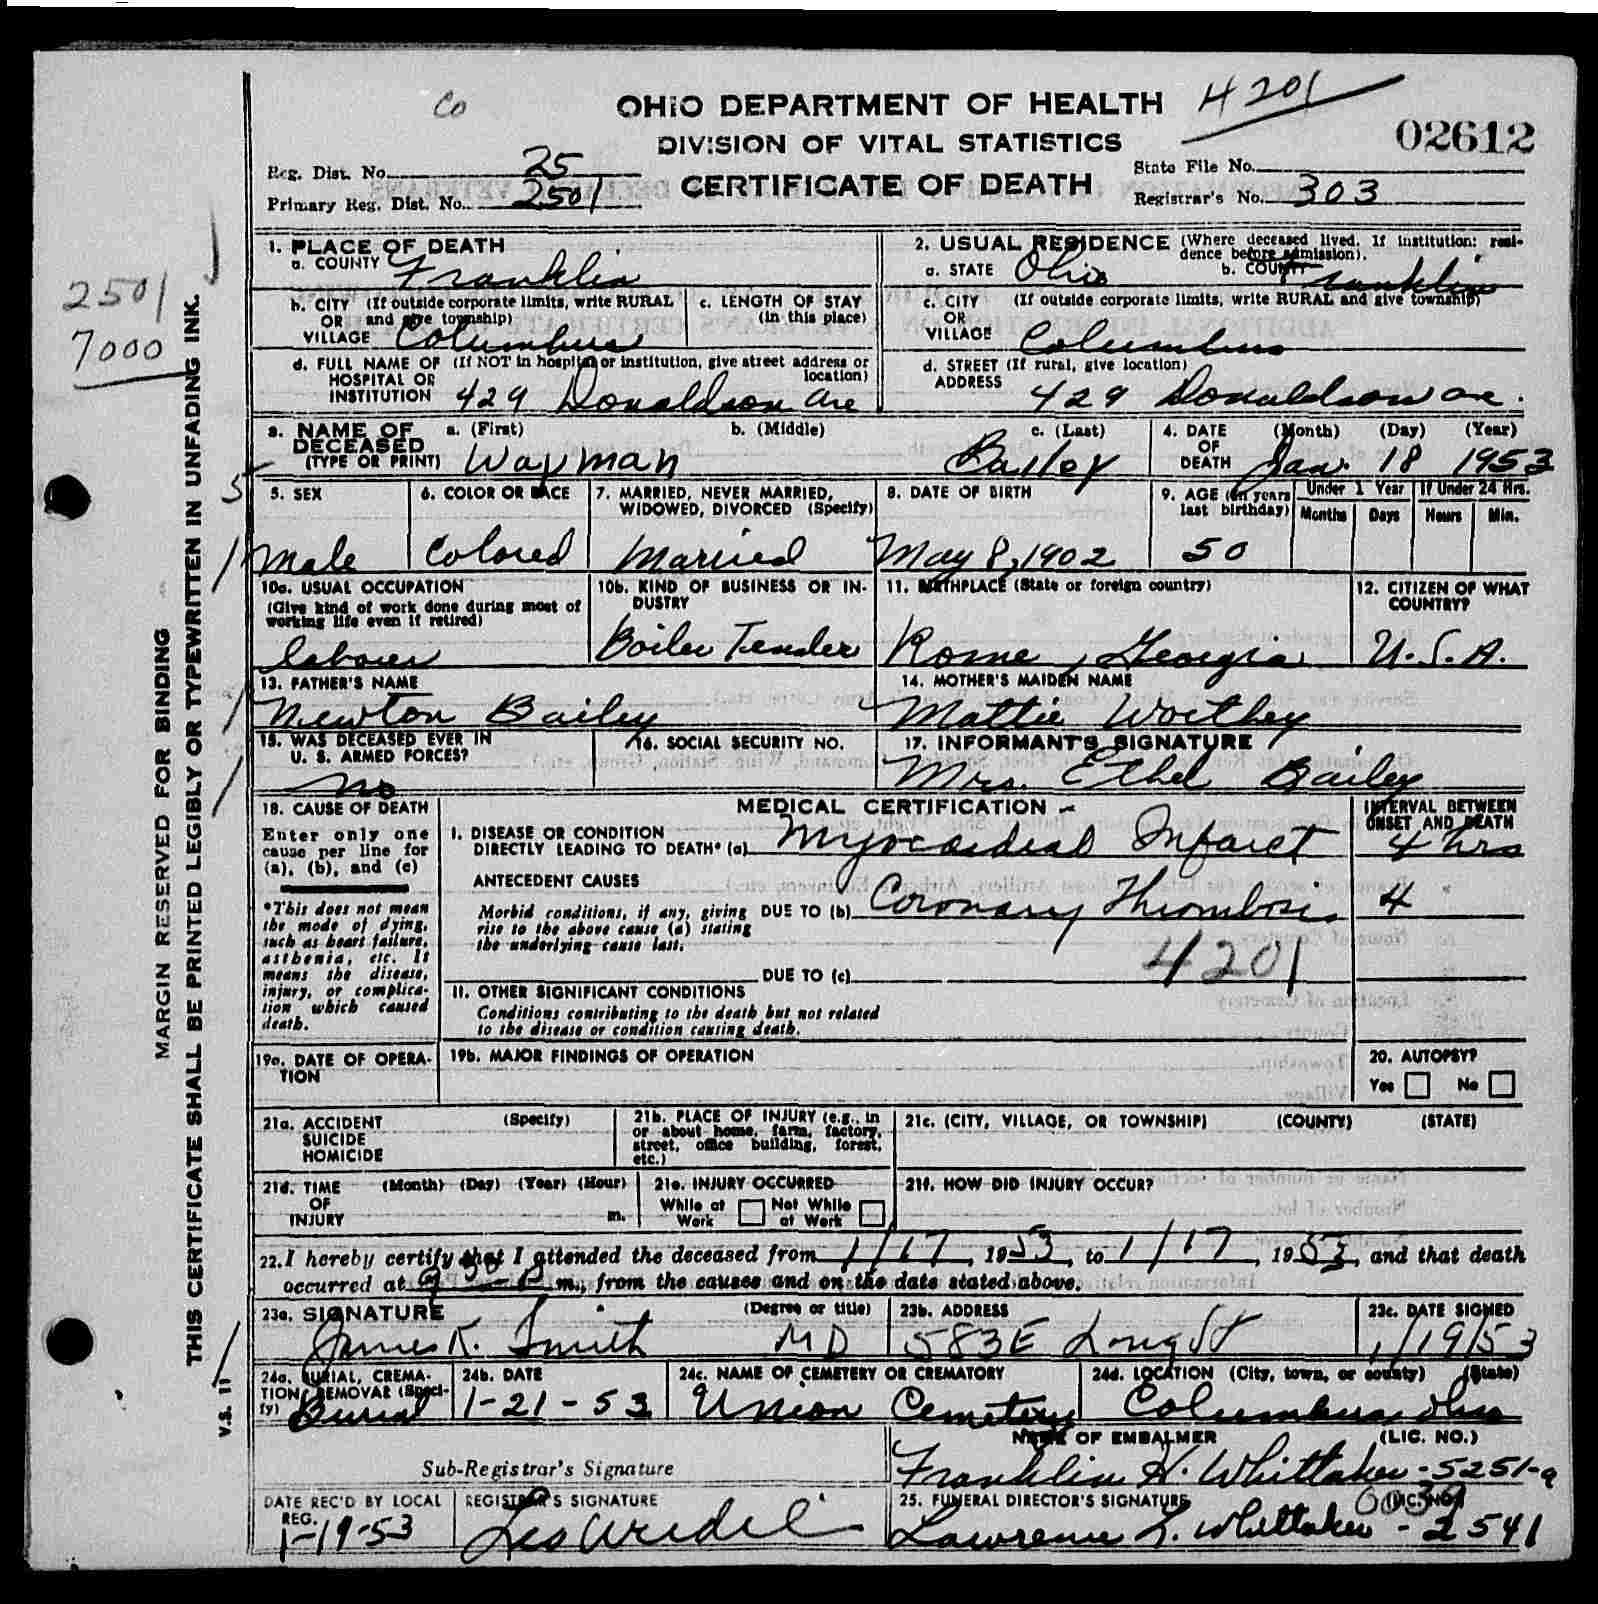 Co
4201
OHIO DEPARTMENT OF HEALTH
DIVISION OF VITAL STATISTICS
CERTIFICATE OF DEATH
02612
Reg. Dist. No. 25
Primary Reg. Dist. No. 2501
State File No.
Registrar's No. 303
2501
7000
MARGIN RESERVED FOR BINDING
THIS CERTIFICATE SHALL BE PRINTED LEGIBLY OR TYPEWRITTEN IN UNFADING INK.
V.S. 11
1. PLACE OF DEATH
a. COUNTY Franklin
b. CITY (If outside corporate limits, write RURAL
OR and give township)
VILLAGE Columbus
c. LENGTH OF STAY
(in this place)
d. FULL NAME OF (If NOT in hospital or institution, give street address or
HOSPITAL OR location)
INSTITUTION 429 Donaldson Ave
2. USUAL RESIDENCE (Where deceased lived. If institution: resi-
dence before admission).
a. STATE Ohio b. COUNTY Franklin
c. CITY (If outside corporate limits, write RURAL and give township)
OR
VILLAGE Columbus
d. STREET (If rural, give location)
ADDRESS 429 Donaldson ave.
3. NAME OF a. (First) b. (Middle) c. (Last)
DECEASED
(TYPE OR PRINT) Wayman Bailey
4. DATE (Month) (Day) (Year)
OF
DEATH Jan. 18 1953
5. SEX
Male
6. COLOR OR RACE
Colored
7. MARRIED, NEVER MARRIED,
WIDOWED, DIVORCED (Specify)
Married
8. DATE OF BIRTH
May 8, 1902
9. AGE (In years
last birthday)
50
Under 1 Year
Months Days
If Under 24 Hrs.
Hours Min.
10a. USUAL OCCUPATION
(Give kind of work done during most of
working life even if retired)
laborer
10b. KIND OF BUSINESS OR IN-
DUSTRY
Boiler Tender
11. BIRTHPLACE (State or foreign country)
Rome, Georgia
12. CITIZEN OF WHAT
COUNTRY?
U.S.A.
13. FATHER'S NAME
Newton Bailey
14. MOTHER'S MAIDEN NAME
Mattie Worthey
15. WAS DECEASED EVER IN
U. S. ARMED FORCES?
No
16. SOCIAL SECURITY NO.
17. INFORMANT'S SIGNATURE
Mrs. Ethel Bailey
18. CAUSE OF DEATH
Enter only one
cause per line for
(a), (b), and (c)
*This does not mean
the mode of dying,
such as heart failure,
asthenia, etc. It
means the disease,
injury, or complica-
tion which caused
death.
MEDICAL CERTIFICATION
I. DISEASE OR CONDITION
DIRECTLY LEADING TO DEATH* (a) Myocardial Infarct
ANTECEDENT CAUSES
Morbid conditions, if any, giving DUE TO (b) Coronary Thrombosis
rise to the above cause (a) stating
the underlying cause last.
4201
DUE TO (c)
II. OTHER SIGNIFICANT CONDITIONS
Conditions contributing to the death but not related
to the disease or condition causing death.
INTERVAL BETWEEN
ONSET AND DEATH
4 hrs
4 "
19a. DATE OF OPERA-
TION
19b. MAJOR FINDINGS OF OPERATION
20. AUTOPSY?
Yes No
21a. ACCIDENT (Specify)
SUICIDE
HOMICIDE
21b. PLACE OF INJURY (e.g., in
or about home, farm, factory,
street, office building, forest,
etc.)
21c. (CITY, VILLAGE, OR TOWNSHIP) (COUNTY) (STATE)
21d. TIME (Month) (Day) (Year) (Hour)
OF
INJURY m.
21e. INJURY OCCURRED
While at Not While
Work at Work
21f. HOW DID INJURY OCCUR?
22. I hereby certify that I attended the deceased from 1/17, 1953, to 1/17, 1953, and that death
occurred at m., from the causes and on the date stated above.
23a. SIGNATURE (Degree or title)
James K. Smith MD
23b. ADDRESS
583 E Long St
23c. DATE SIGNED
1/19/53
24a. BURIAL, CREMA-
TION, REMOVAL (Speci-
fy) Burial
24b. DATE
1-21-53
24c. NAME OF CEMETERY OR CREMATORY
Union Cemetery
24d. LOCATION (City, town, or county) (State)
Columbus, Ohio
Sub-Registrar's Signature
NAME OF EMBALMER (LIC. NO.)
Franklin H. Whittaker - 5251-a
DATE REC'D BY LOCAL
REG.
1-19-53
REGISTRAR'S SIGNATURE
25. FUNERAL DIRECTOR'S SIGNATURE (LIC. NO.)
Lawrence L. Whittaker - 2541